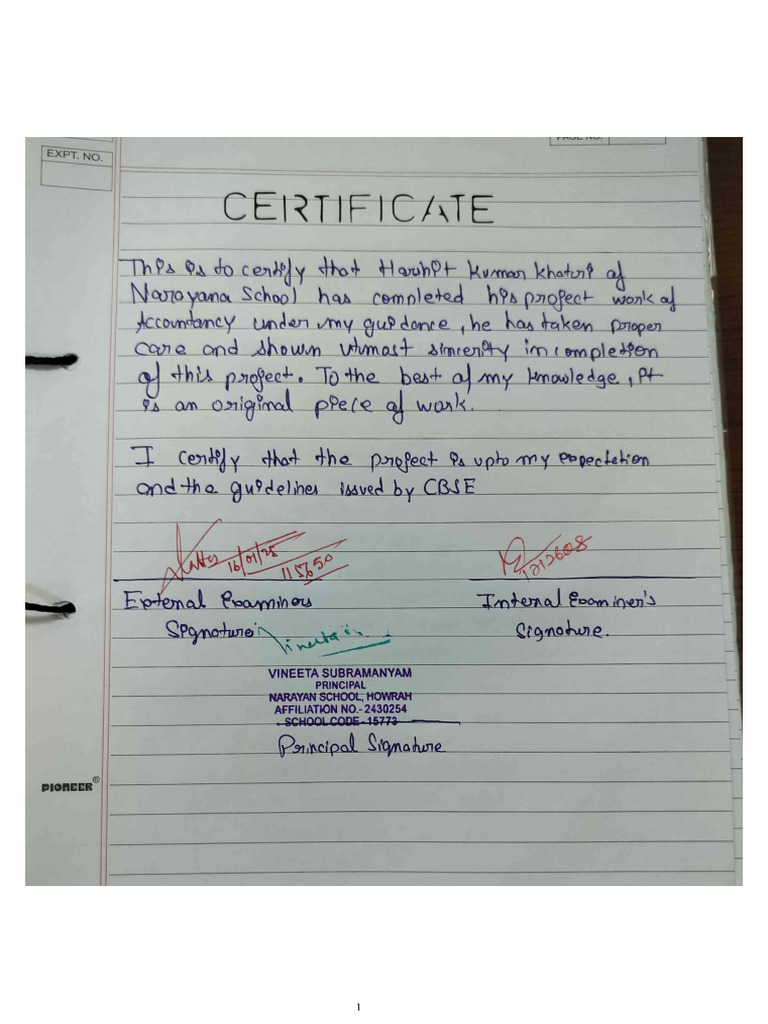 PAGE NO.
EXPT. NO.
CERTIFICATE
This is to certify that Harshit Kumar Khatri of
Narayana School has completed his project work of
Accountancy under my guidance, he has taken proper
care and shown utmost sincerity in completion
of this project. To the best of my knowledge, it
is an original piece of work.
I certify that the project is upto my expectation
and the guidelines issued by CBSE
16/01/25
115650
1212608
External Examiners
Internal Examiner's
Signature
Signature.
Vineeta
VINEETA SUBRAMANYAM
PRINCIPAL
NARAYAN SCHOOL, HOWRAH
AFFILIATION NO.- 2430254
SCHOOL CODE - 15773
Principal Signature
PIONEER®
1